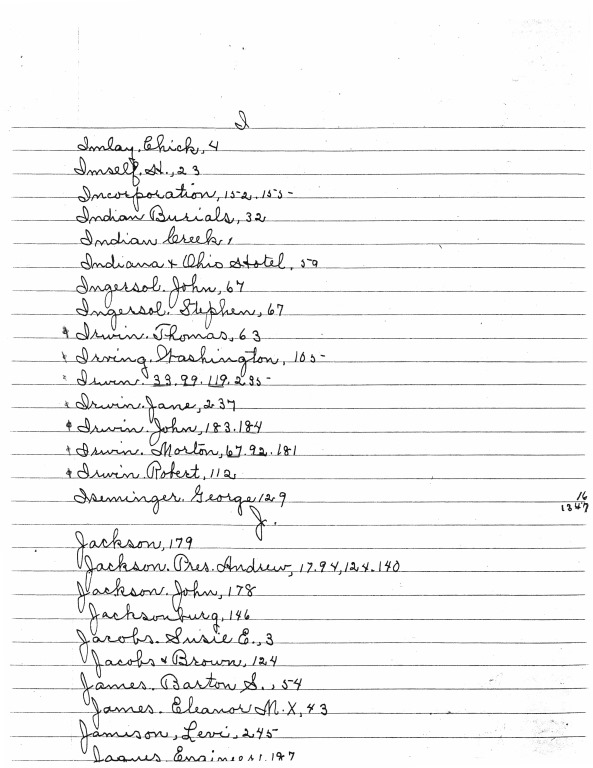 I
Imlay, Chick, 4
Imself, H., 23
Incorporation, 152.155-
Indian Burials, 32
Indian Creek,
Indiana + Ohio Hotel, 59
Ingersol. John, 67
Ingersol. Stephen, 67
Irwin. Thomas, 63
Irving. Washington, 105-
Irwin. 33.99.119.235-
Irwin. Jane, 237
Irwin. John, 183.184
Irwin. Morton, 67.92.181
Irwin Robert, 112
Iseminger. George 129
16
1347
J.
Jackson, 179
Jackson. Pres. Andrew, 17.94,124.140
Jackson. John, 178
Jacksonburg, 146
Jacobs. Susie E., 3
Jacobs & Brown, 124
James. Barton S., 54
James. Eleanor M.X, 43
Jamison, Levi, 245
Jaques Engineer, 197